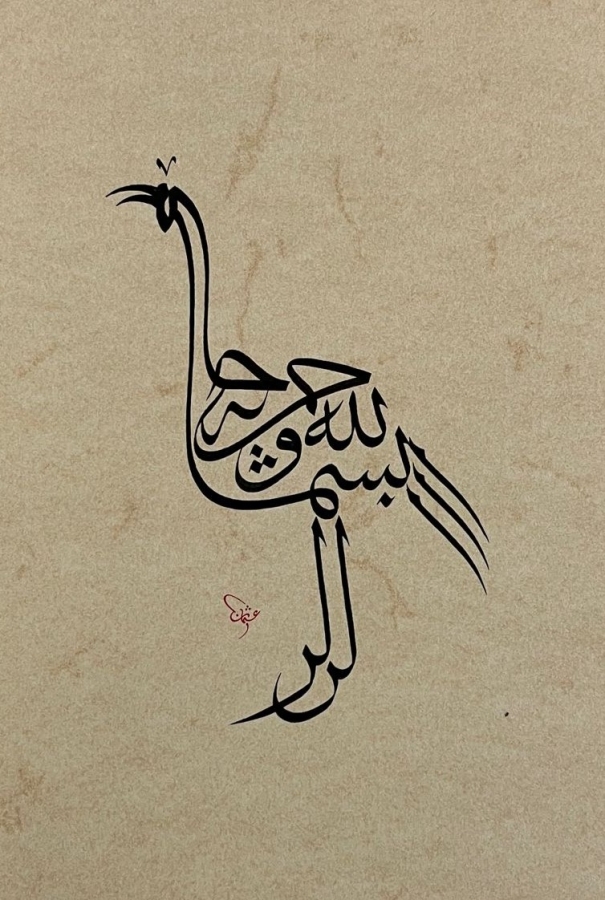 بسم الله الرحمن الرحيم
عثمان